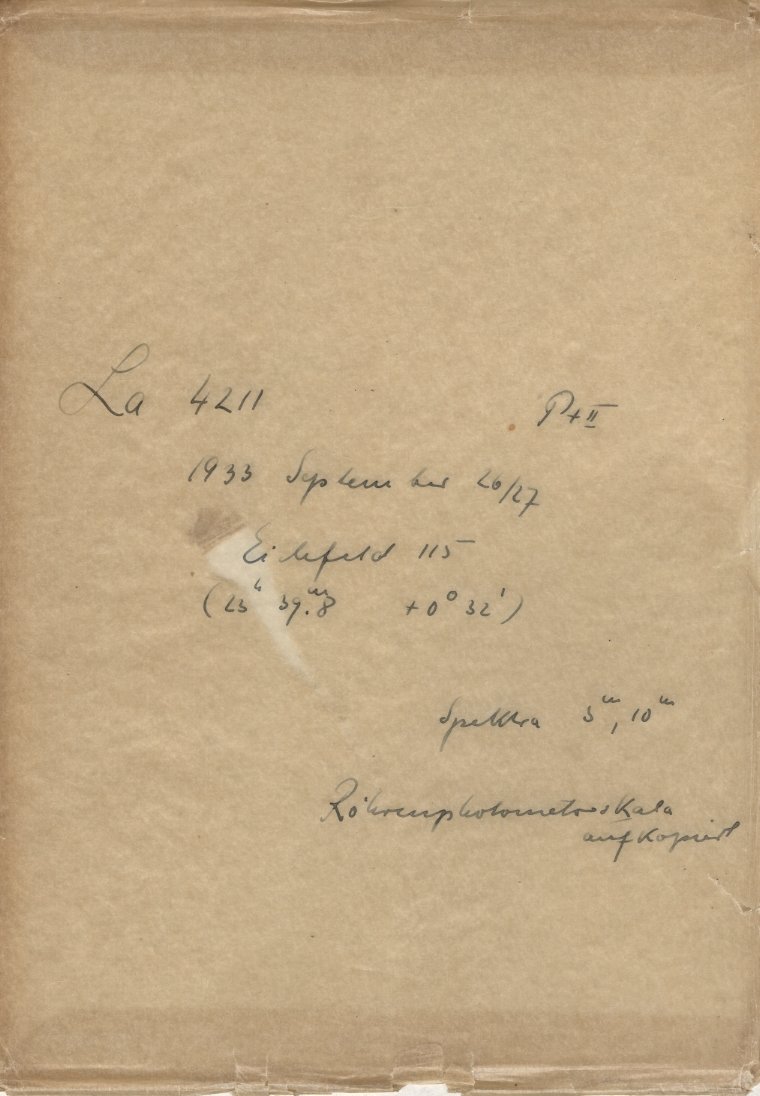 La 4211 P+II
1933 September 26/27
Eichfeld 115
(23h 39.m8 +0° 32')
Spektra 3m, 10m
Röhrenphotometerskala
aufkopiert